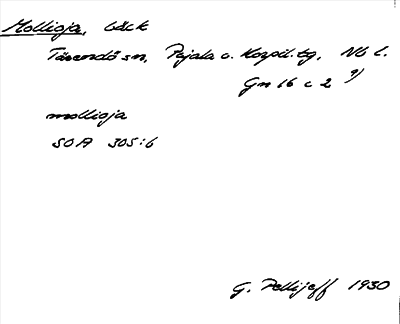 Mollioja, bäck
Tärendö sn, Pajala o. Korpil. tg, Nb l.
Gm 16 c 2 ?)
mollioja
SOA 305:6
G. Pellijeff 1930